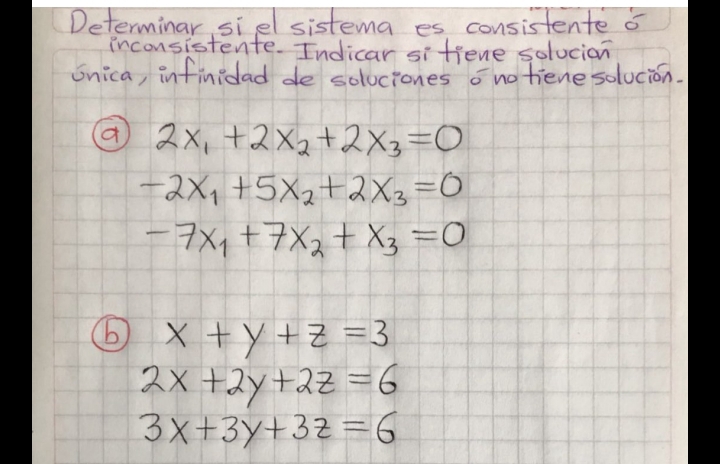 Determinar si el sistema es consistente ó
inconsistente. Indicar si tiene solución
única, infinidad de soluciones ó no tiene solución.
a 2x₁ + 2x₂ + 2x₃ = 0
-2x₁ + 5x₂ + 2x₃ = 0
-7x₁ + 7x₂ + x₃ = 0
b x + y + z = 3
2x + 2y + 2z = 6
3x + 3y + 3z = 6